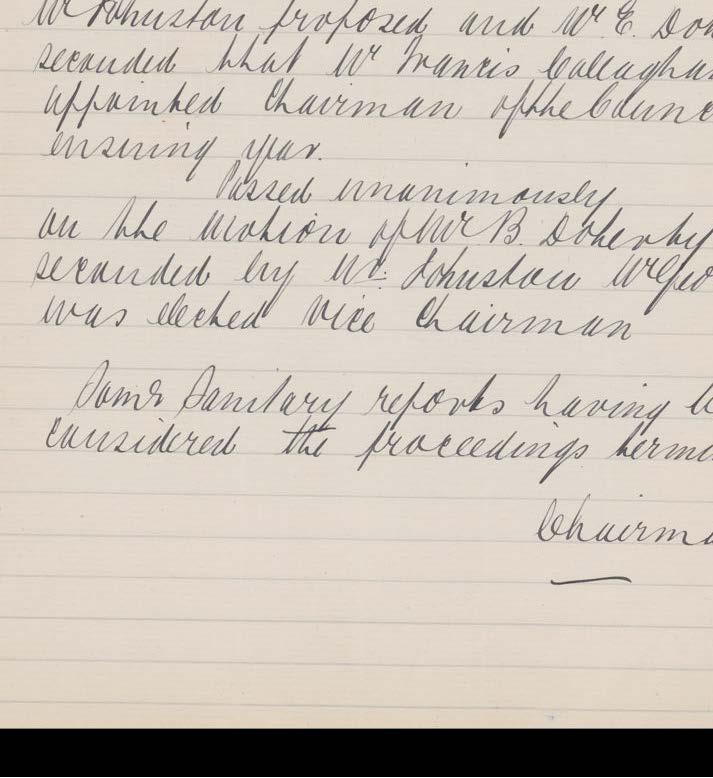 Mr Johnston proposed and Mr E. Do
seconded that Mr Francis Callagha
appointed Chairman of the Counc
ensuing year.
Passed unanimously
on the motion of Mr B. Doherty
seconded by Mr. Johnston Mr Geo
was elected Vice Chairman
Some Sanitary reports having b
considered the proceedings termi
Chairma